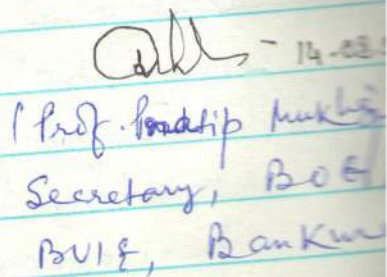 - 14-02
(Prof. Pradip Mukhe
Secretary, BOE
BVIE, Bankur